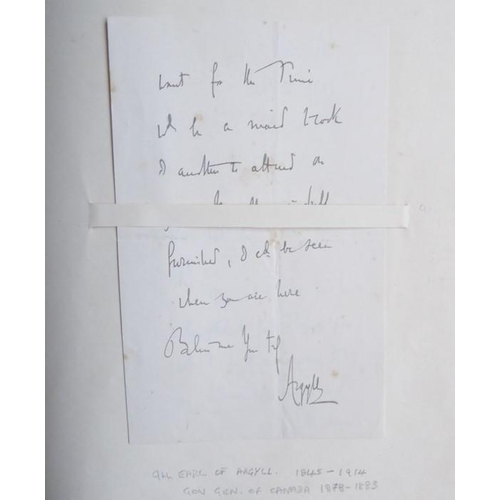 want for the Time
wd be a maid & cook
& another to attend as
furnished, & cd be seen
when you are here
Believe me Yrs ty
Argyll
9th EARL OF ARGYLL. 1845-1914
GOV GEN. OF CANADA 1878-1883